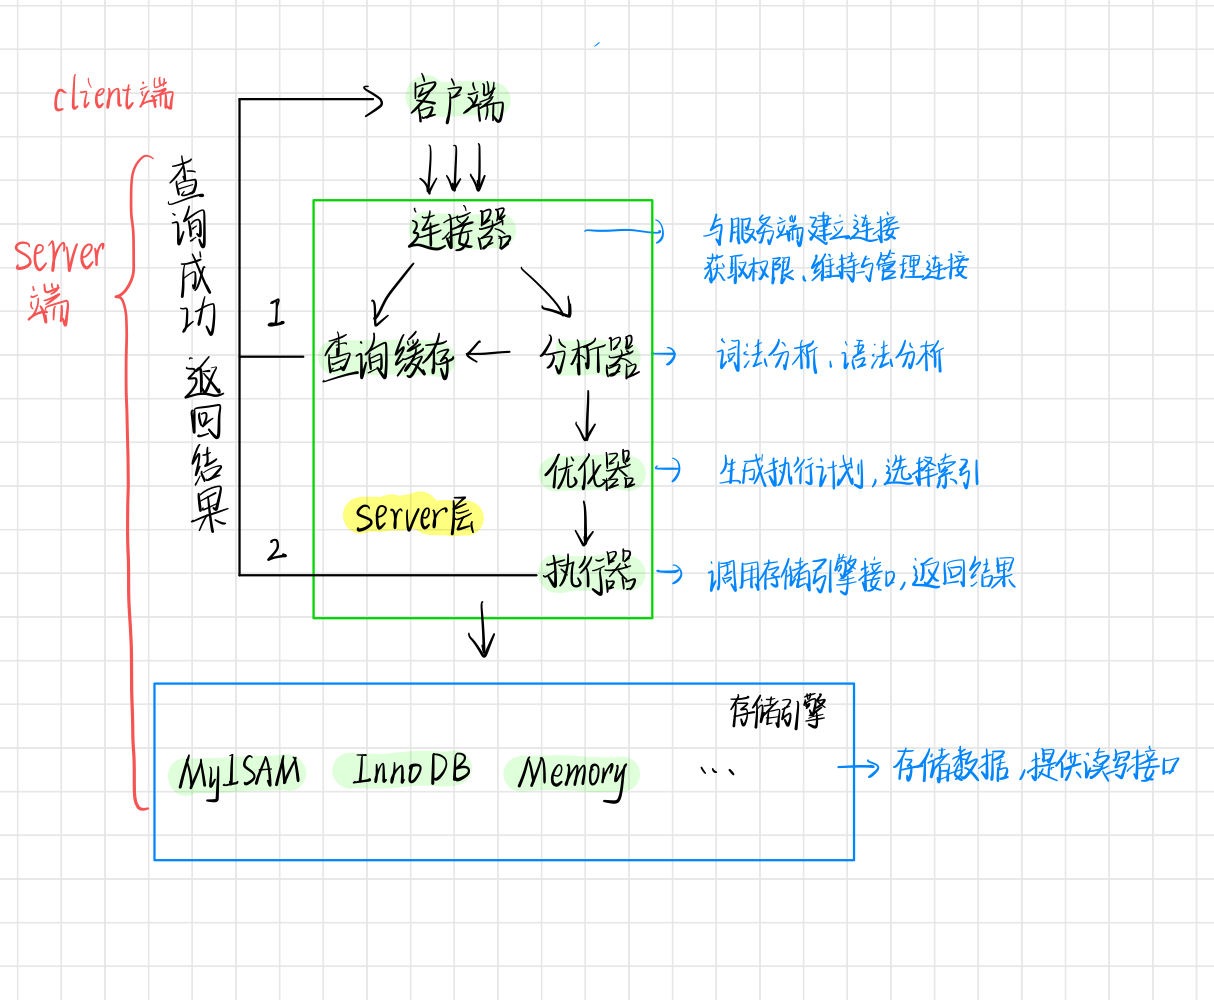 client端
客户端
server端
查询成功 返回结果
连接器
与服务端建立连接
获取权限、维持与管理连接
1
查询缓存
分析器
词法分析、语法分析
优化器
生成执行计划,选择索引
server层
2
执行器
调用存储引擎接口,返回结果
存储引擎
MyISAM
InnoDB
Memory
...
存储数据,提供读写接口